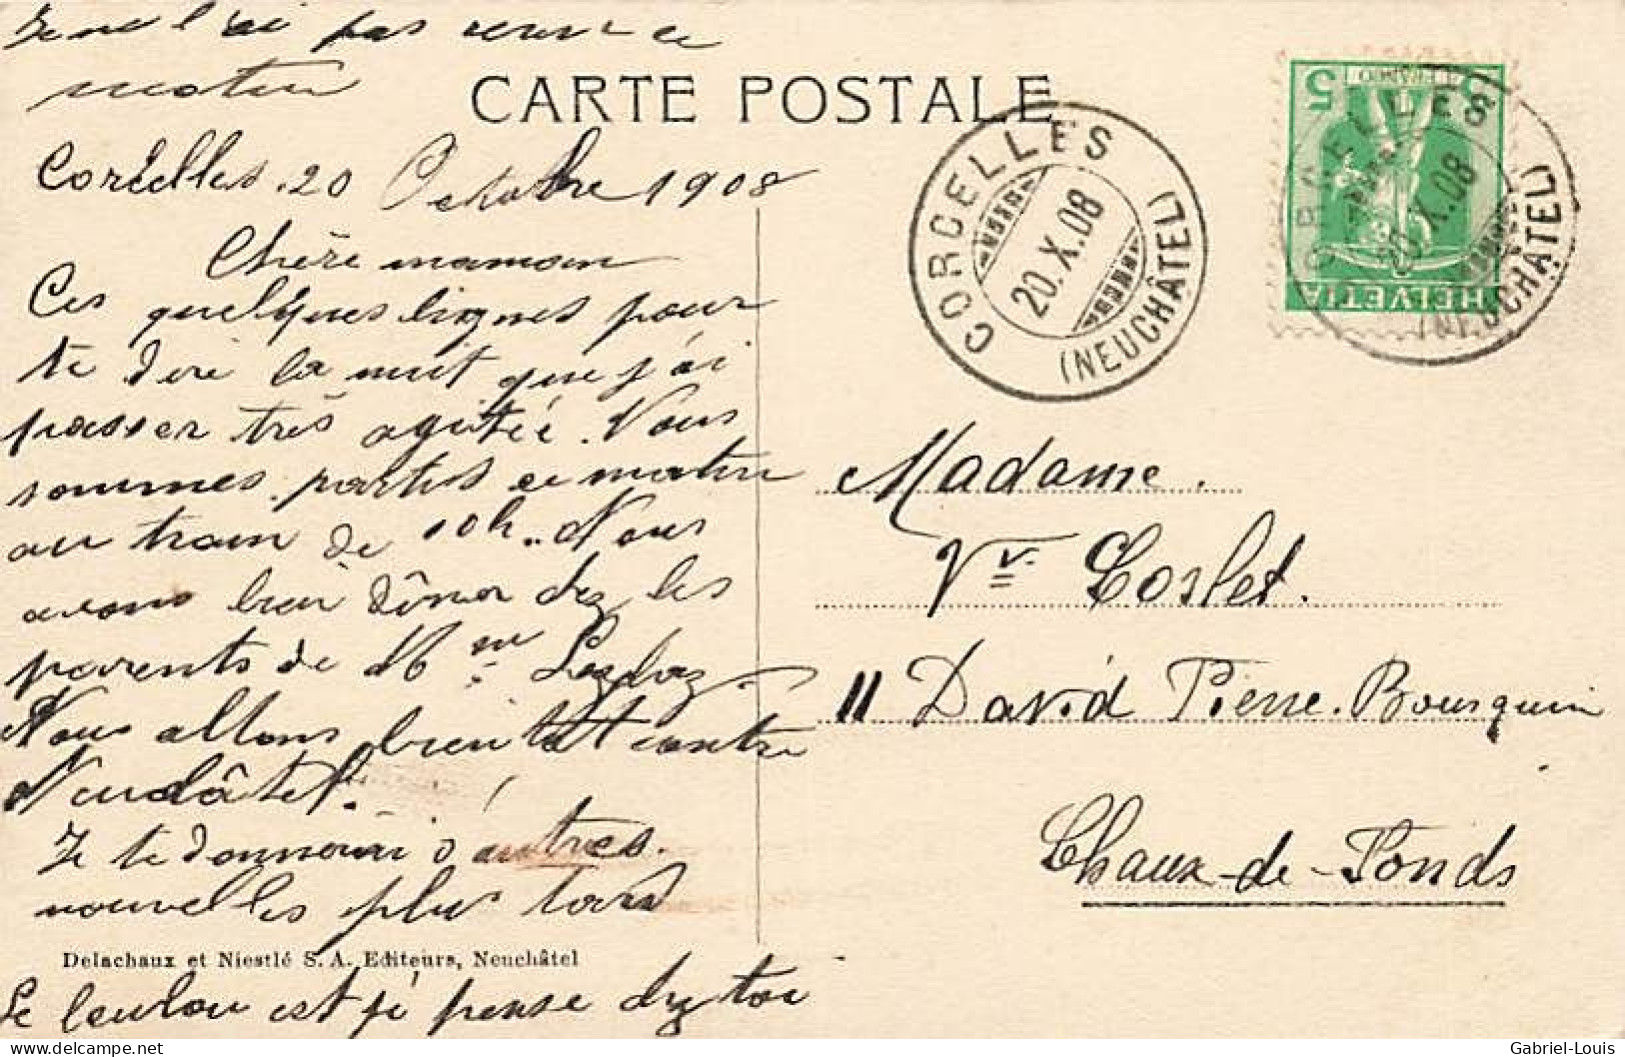 Je ne l'ai pas revu ce
matin
CARTE POSTALE
Corcelles . 20 Octobre 1908
Chère maman
Ces quelques lignes pour
te dire la nuit que j'ai
passer très agitée. Nous
sommes partis ce matin
au train de 10h.. Nous
avons bien dîner chez les
parents de Mme
Nous allons bientôt contre
Neuchâtel.
Je te donnerai d'autres.
nouvelles plus tard
Delachaux et Niestlé S. A. Editeurs, Neuchâtel
Le loulou est je pense chez toi
CORCELLES
20.X.08
(NEUCHÂTEL)
5
FRANCO
HELVETIA
CORCELLES
20.X.08
(NEUCHÂTEL)
Madame.
Vve Coslet.
11 David Pierre-Bourquin
Chaux-de-Fonds
delcampe.net
Gabriel-Louis